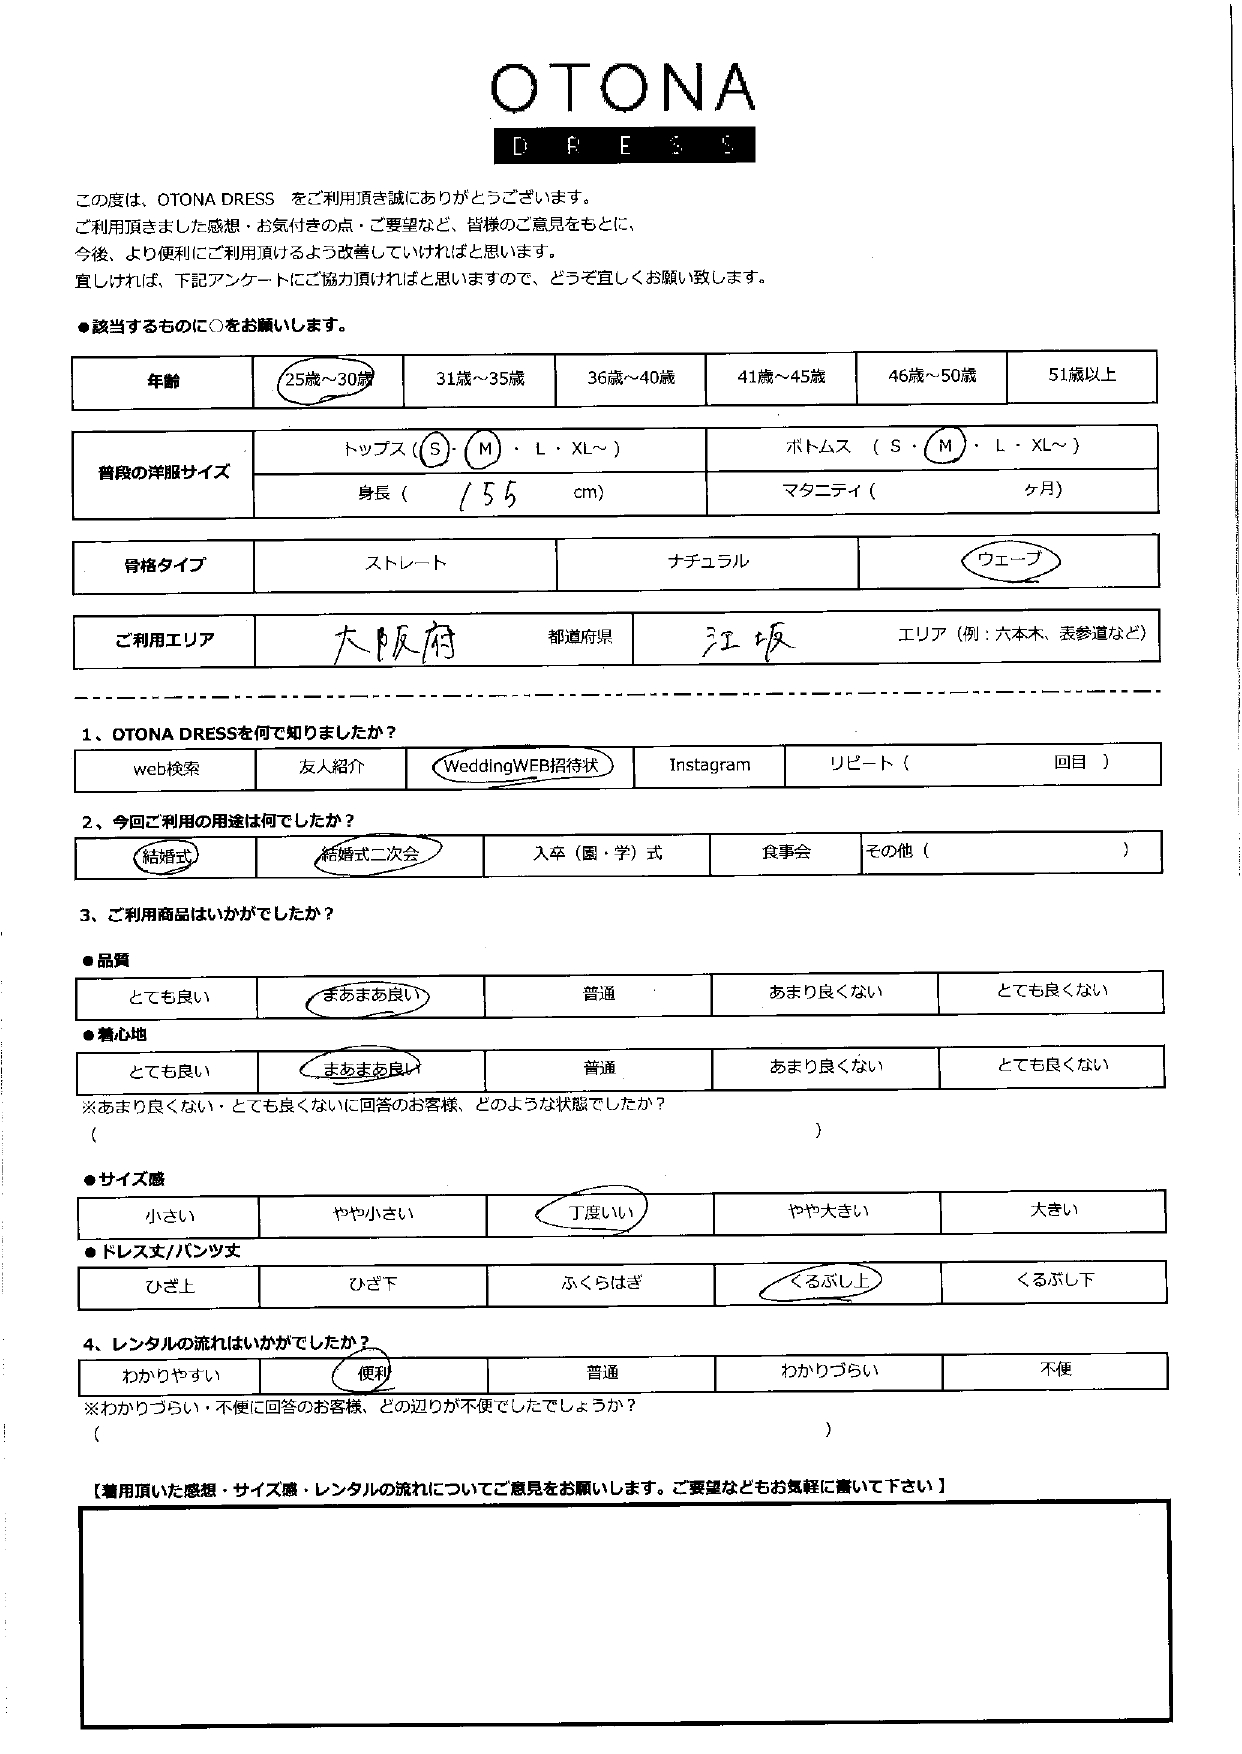 OTONA
DRESS
この度は、OTONA DRESS をご利用頂き誠にありがとうございます。
ご利用頂きました感想・お気付きの点・ご要望など、皆様のご意見をもとに、
今後、より便利にご利用頂けるよう改善していければと思います。
宜しければ、下記アンケートにご協力頂ければと思いますので、どうぞ宜しくお願い致します。
●該当するものに○をお願いします。
年齢 25歳～30歳 31歳～35歳 36歳～40歳 41歳～45歳 46歳～50歳 51歳以上
普段の洋服サイズ トップス ( S ・ M ・ L ・ XL～ ) ボトムス ( S ・ M ・ L ・ XL～ )
身長 ( 155 cm) マタニティ ( ヶ月)
骨格タイプ ストレート ナチュラル ウェーブ
ご利用エリア 大阪府 都道府県 江坂 エリア（例：六本木、表参道など）
1、OTONA DRESSを何で知りましたか？
web検索 友人紹介 WeddingWEB招待状 Instagram リピート ( 回目 )
2、今回ご利用の用途は何でしたか？
結婚式 結婚式二次会 入卒（園・学）式 食事会 その他 ( )
3、ご利用商品はいかがでしたか？
●品質
とても良い まあまあ良い 普通 あまり良くない とても良くない
●着心地
とても良い まあまあ良い 普通 あまり良くない とても良くない
※あまり良くない・とても良くないに回答のお客様、どのような状態でしたか？
( )
●サイズ感
小さい やや小さい 丁度いい やや大きい 大きい
●ドレス丈/パンツ丈
ひざ上 ひざ下 ふくらはぎ くるぶし上 くるぶし下
4、レンタルの流れはいかがでしたか？
わかりやすい 便利 普通 わかりづらい 不便
※わかりづらい・不便に回答のお客様、どの辺りが不便でしたでしょうか？
( )
【着用頂いた感想・サイズ感・レンタルの流れについてご意見をお願いします。ご要望などもお気軽に書いて下さい】